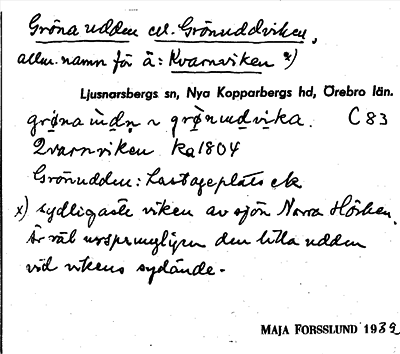 Gröna udden el. Grönuddviken,
allm. namn för å: Kvarnviken x)
Ljusnarsbergs sn, Nya Kopparbergs hd, Örebro län.
grø̀na ùdn̥ ~ grø̀nudvika. C 83
Qvarnviken ka 1804
Grönudden: Lastageplats ek
x) sydligaste viken av sjön Norra Hörken.
Är väl ursprungligen den lilla udden
vid vikens sydände.
MAJA FORSSLUND 1939